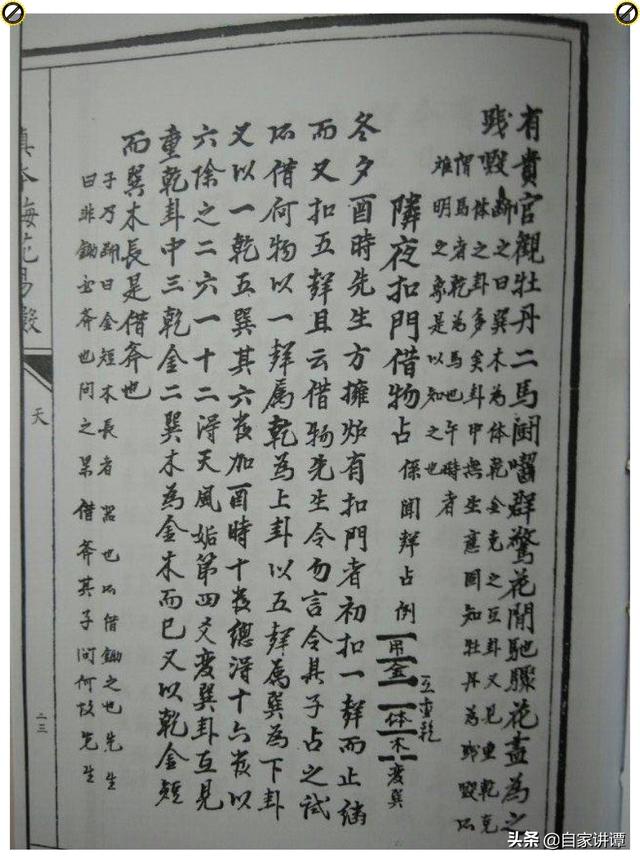 有貴官觀牡丹二馬闘嚙群驚花間馳驟花盡為之
殘毀
斷之曰巽木為体乾金克之互卦又見重乾克
体之卦多矣卦中無生意固知牡丹為踐毀
謂馬者乾為馬也午時者
難明之象是以知之也
隣夜扣門借物占
係聞聲占例
用金
体木
互重乾
变巽
冬夕酉時先生方擁炉有扣門者初扣一聲而止繼
而又扣五聲且云借物先生令勿言令其子占之試
所借何物以一聲属乾為上卦以五聲属巽為下卦
又以一乾五巽共六数加酉時十数總得十六数以
六除之二六一十二得天風姤第四爻变巽卦互見
重乾卦中三乾金二巽木為金木而已又以乾金短
而巽木長是借斧也
子乃断曰金短木長者器也所借鋤之也先生
曰非鋤必斧也问之果借斧其子问何故先生
真本梅花易數
天
二三
头条 @自家讲谭